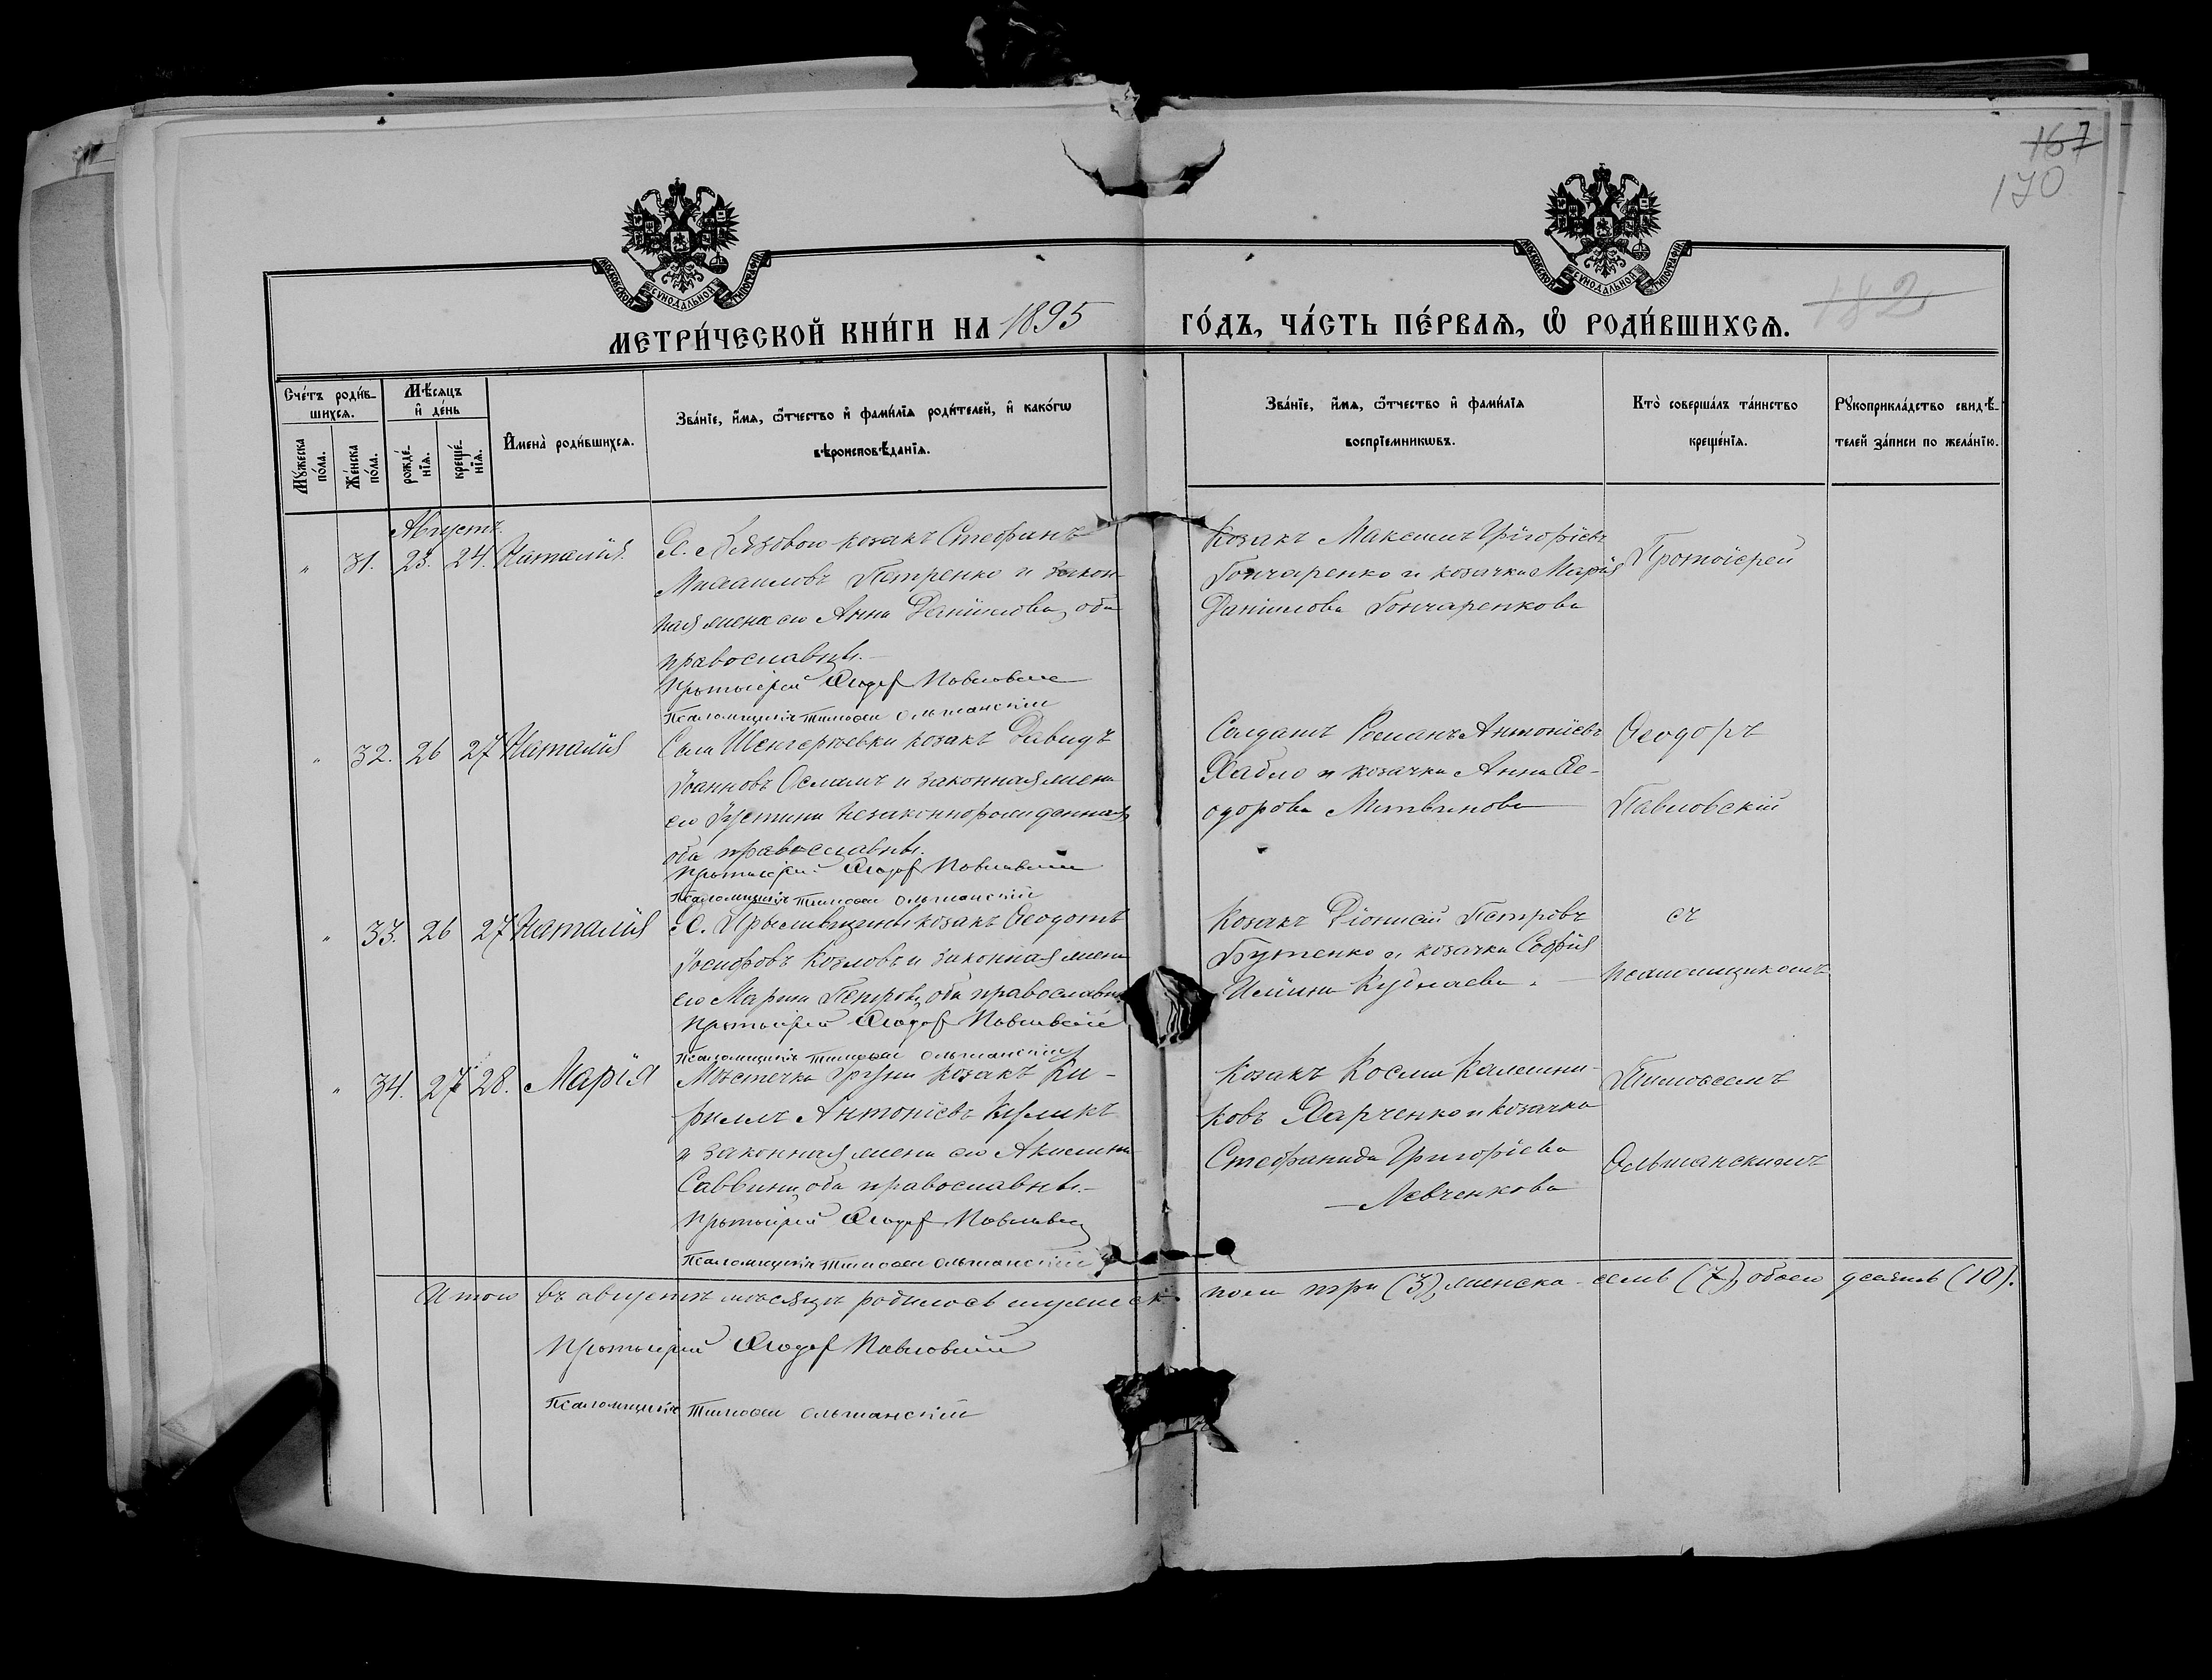 167
170
182
МОСКОВСКОЙ СѴНОДАЛЬНОЙ ТИПОГРАФІИ
МОСКОВСКОЙ СѴНОДАЛЬНОЙ ТИПОГРАФІИ
МЕТРИ́ЧЕСКОЙ КНИ́ГИ НА 1895 ГО́ДЪ, ЧА́СТЬ ПЕ́РВАЯ, Ѽ РОДИ́ВШИХСЯ.
Сче́тъ роди́в-
шихся.
Мѣ́сяцъ
и҆ де́нь
Мꙋ́жеска
по́ла.
Же́нска
по́ла.
рожде́-
нїя.
креще́-
нїя.
И҆мена̀ роди́вшихся.
Зва́нїе, и҆́мя, ѻ҆́тчество и҆ фами́лїя роди́телей, и҆ како́гѡ
вѣроисповѣ́данїя.
Зва́нїе, и҆́мя, ѻ҆́тчество и҆ фами́лїя
воспрїе́мникѡвъ.
Кто̀ соверша́лъ та́инство
креще́нїя.
Рꙋкоприкла́дство свидѣ́-
телей за́писи по жела́нїю.
Августъ.
" 31. 23. 24. Наталія.
С. козакъ Стефанъ
Михаиловъ Петренко и закон-
ная жена его Анна Даніилова, оба
православны.-
Протоіерей Ѳеодоръ Павловскій
Псаломщикъ Тимоѳей Ольшанскій
Козакъ Максимъ Григоріевъ
Гончаренко и козачка Марія
Даніилова Гончаренкова
Протоіерей
" 32. 26 27 Наталія
Села козакъ Давидъ
Іоанновъ и законная жена
его Іустина незаконнорожденная,
оба православны.
Протоіерей Ѳеодоръ Павловскій
Псаломщикъ Тимоѳей Ольшанскій
Солдатъ Романъ Антоніевъ
Хабло и козачка Анна Ѳе-
одорова Литвинова
Ѳеодоръ
Павловскій
" 33. 26 27 Наталія
С. козакъ Ѳеодотъ
Іосифовъ Козловъ и законная жена
его Марина Петрова, оба православны
Протоіерей Ѳеодоръ Павловскій
Псаломщикъ Тимоѳей Ольшанскій
Козакъ Діонисій Петровъ
Бутенко и козачка Софія
Иліина
съ
псаломщикомъ
" 34. 27 28. Марія
Мѣстечка Груни козакъ Ки-
риллъ Антоніевъ Куликъ
и законная жена его Акилина
Саввина, оба православны.-
Протоіерей Ѳеодоръ Павловскій
Псаломщикъ Тимоѳей Ольшанскій
Козакъ Косма Каллини-
ковъ Харченко и козачка
Стефанида Григоріева
-Левченкова
Тимоѳеемъ
Ольшанскимъ
Итого въ августѣ мѣсяцѣ родилось мужеск. пола три (3), женска семь (7), обоего десять (10).
Протоіерей Ѳеодоръ Павловскій
Псаломщикъ Тимоѳей Ольшанскій